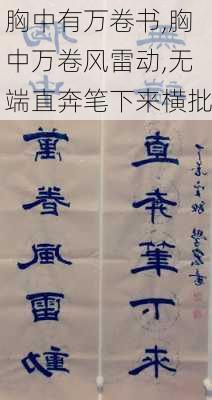 胸中有万卷书,胸
中万卷风雷动,无
端直奔笔下来横批
胸中萬卷風雷動
無端直奔筆下来